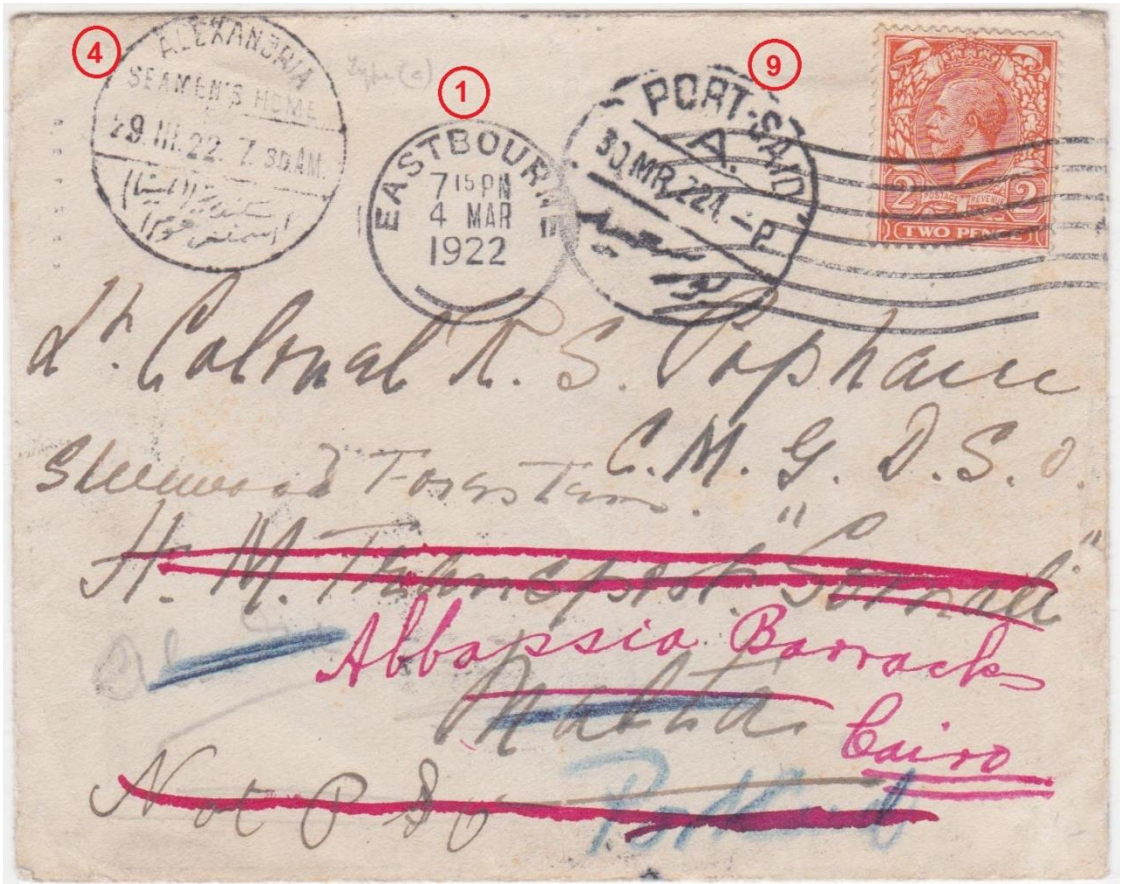 4
ALEXANDRIA
SEAMEN'S HOME
29. III. 22. 7.30AM.
Type (c)
1
EASTBOURNE
7 15 PM
4 MAR
1922
9
PORT-SAID
A.
30.MR.22 4.-P
2 POSTAGE REVENUE 2
TWO PENCE
Lt. Colonal R. S. Popham
C. M. G. D. S. O.
Sherwood Foresters.
H. M. Transport. "Somali"
Abbassia Barracks
Malta.
Cairo
Not P & O